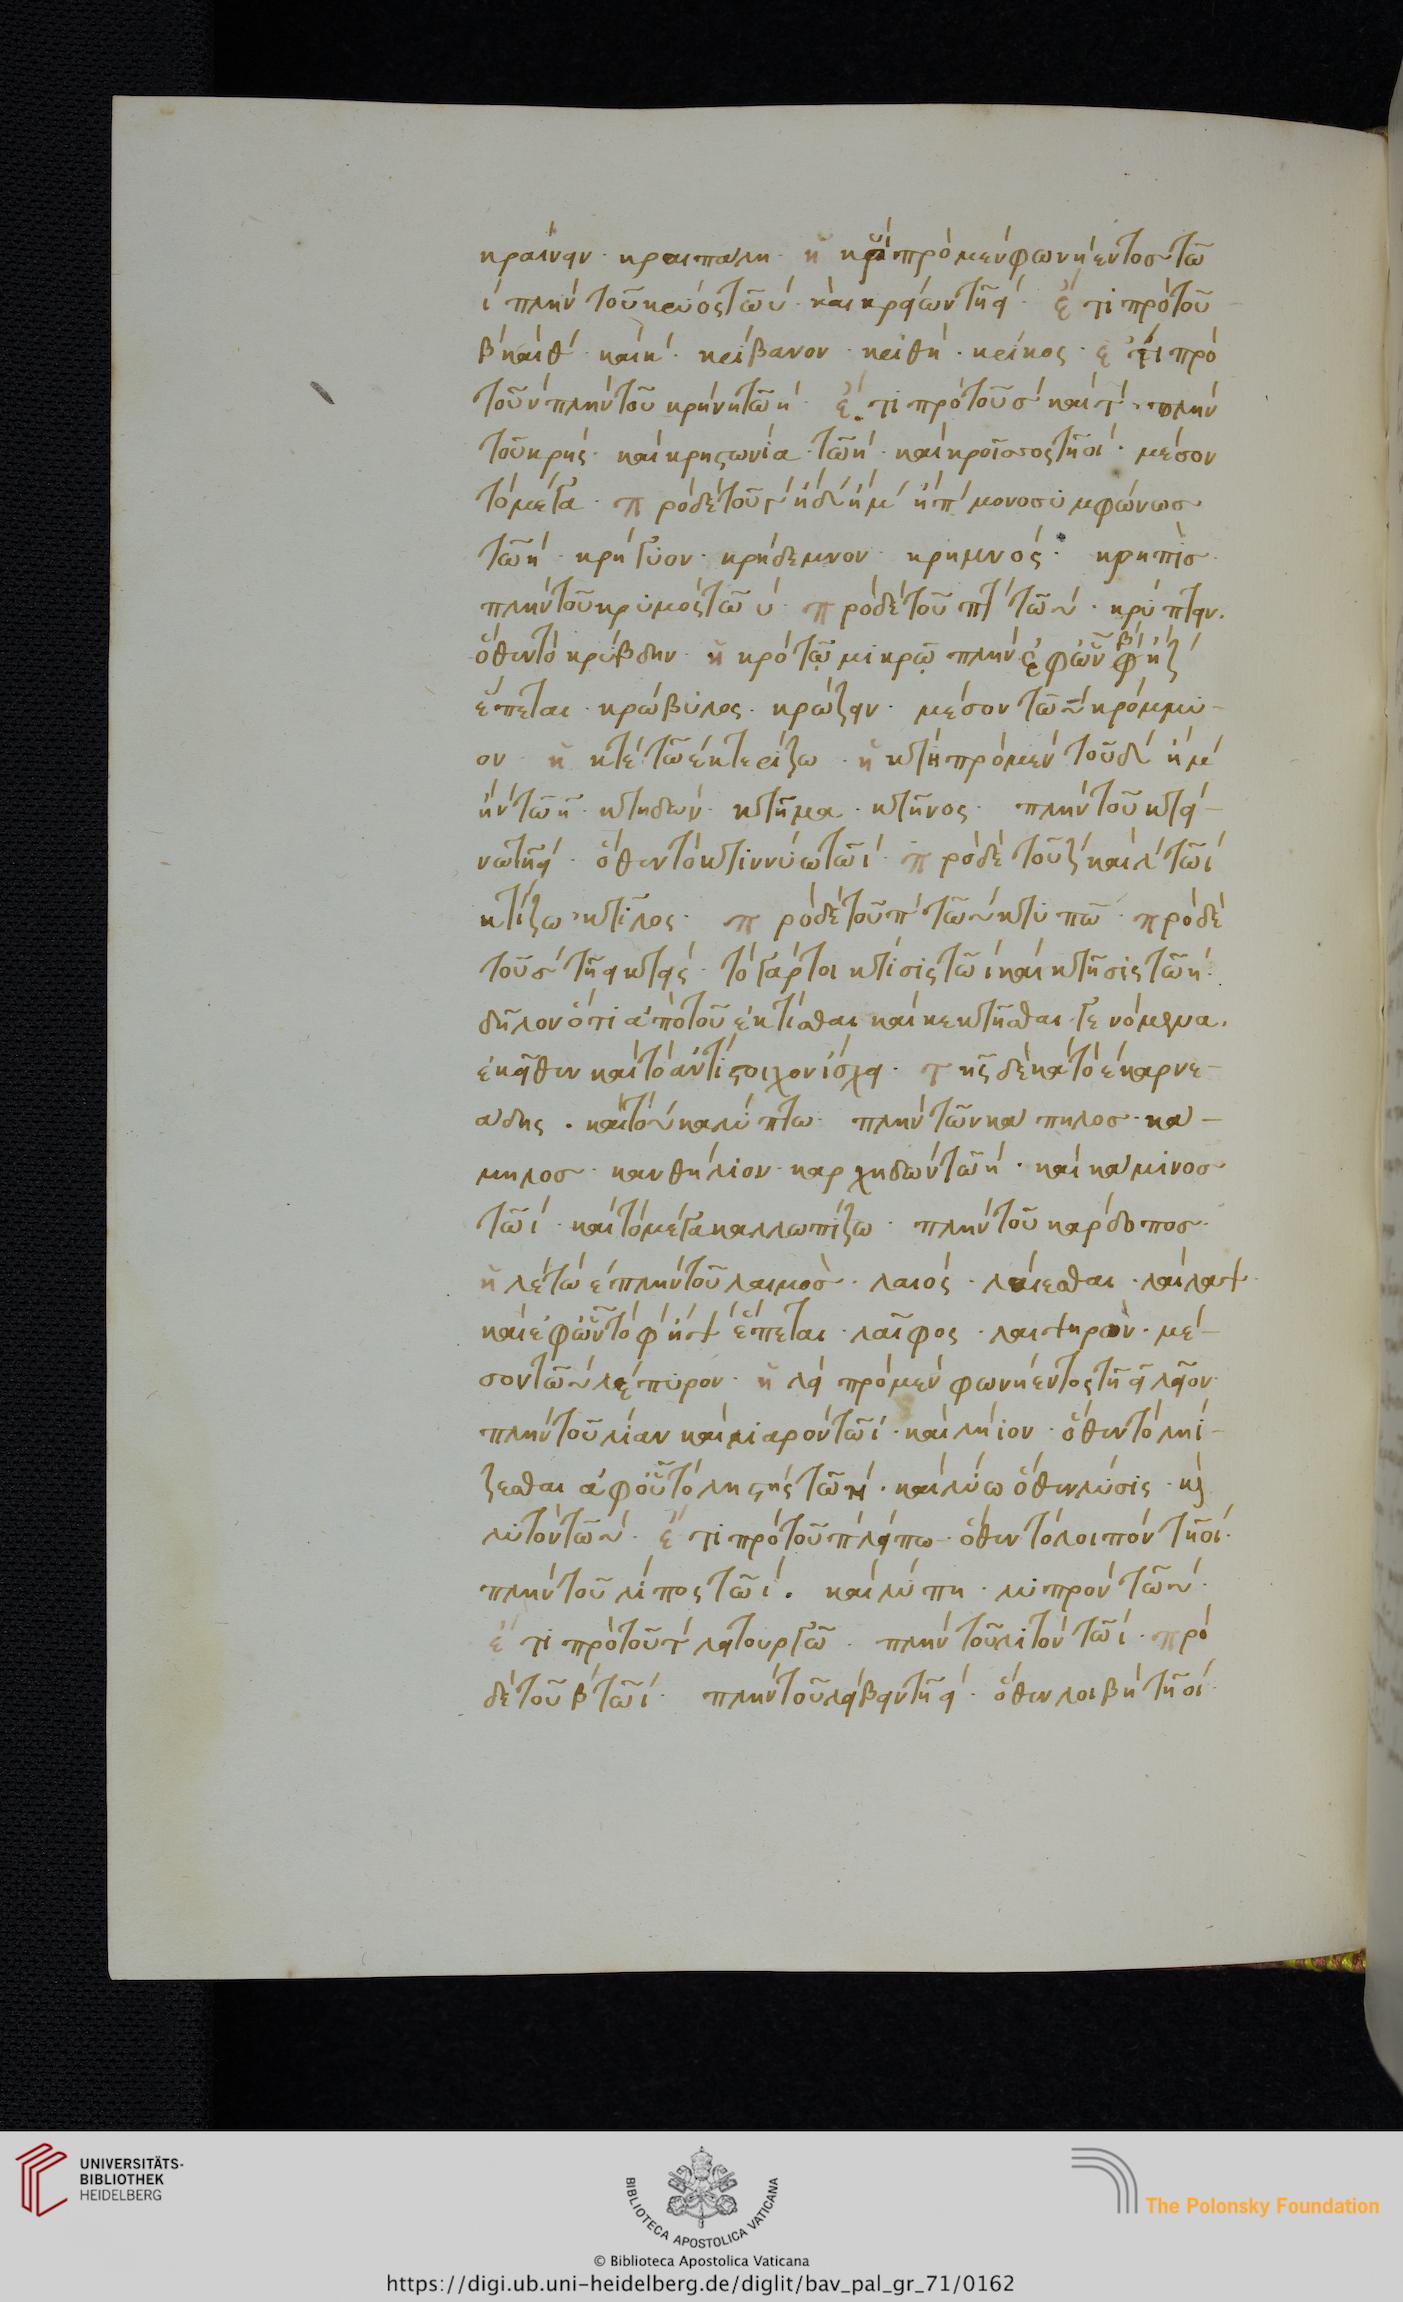 κραίνειν· κραιπάλη· ἡ κρι πρὸ μὲν φωνήεντος τῶ
ι πλὴν τοῦ κρύος τῶ υ· καὶ κρείων τῆ ει· ἔτι πρὸ τοῦ
β ἢ καὶ θ καὶ κ· κρίβανον· κριθὴ· κρίκος· ἔτι πρὸ
τοῦ ν πλὴν τοῦ κρήνη τῶ η· ἔτι πρὸ τοῦ σ καὶ τ· πλὴν
τοῦ κρής· καὶ κρηστωνία τῶ η· καὶ κροῖσος τῆ οι· μέσον
τὸ μέγα· πρὸ δὲ τοῦ γ ἢ δ ἢ μ ἢ π μονοσυμφώνως
τῶ η· κρήγυον· κρήδεμνον· κρημνός· κρηπὶς·
πλὴν τοῦ κρυμός τῶ υ· πρὸ δὲ τοῦ πτ τῶ υ· κρύπτειν·
ὅθεν τὸ κρύβδην· ἡ κρο τῶ μικρῶ πλὴν ἐφ' ὧν β ἢ ζ
ἕπεται· κρωβύλος· κρώζειν· μέσον τῶ υ κρόμμυ-
ον· ἡ κτε τῶ ε κτερίζω· ἡ κτη πρὸ μὲν τοῦ δ ἢ μ
ἢ ν τῶ η· κτηδών· κτῆμα· κτῆνος· πλὴν τοῦ κτεί-
νω τῆ ει· ὅθεν τὸ κτιννύω τῶ ι· πρὸ δὲ τοῦ ζ καὶ λ τῶ ι
κτίζω· κτίλος· πρὸ δὲ τοῦ π τῶ υ κτυπῶ· πρὸ δὲ
τοῦ σ τῆ ει κτείς· τὸ γάρ τοι κτίσις τῶ ι καὶ κτῆσις τῶ η·
δῆλον ὅτι ἀπὸ τοῦ ἐκτίσθαι καὶ κεκτῆσθαι γενόμενα·
ἐκεῖθεν καὶ τὸ ἀντίστοιχον ἴσχει· τῆς δὲ κα τὸ ε καρνε-
άδης· καὶ τὸ υ καλύπτω· πλὴν τῶν κάπηλος· κά-
μηλος· κανθήλιον· καρχηδών τῶ η· καὶ κάμινος
τῶ ι· καὶ τὸ μέγα καλλωπίζω· πλὴν τοῦ κάρδοπος·
ἡ λε τῶ ε πλὴν τοῦ λαιμὸς· λαιός· λαίεσθαι· λαίλαψ
καὶ ἐφ' ὧν τὸ φ ἢ ψ ἕπεται· λαῖφος· λαιψηρὸν· μέ-
σον τῶ υ λέπυρον· ἡ λει πρὸ μὲν φωνήεντος τῆ ει λεῖον
πλὴν τοῦ λίαν καὶ λιαρὸν τῶ ι· καὶ λήιον· ὅθεν τὸ λη-
ίζεσθαι ἀφ' οὗ τὸ ληστής τῶ η· καὶ λύω ὅθεν λύσις· καὶ
λυτὸν τῶ υ· ἔτι πρὸ τοῦ π λείπω· ὅθεν τὸ λοιπὸν τῆ οι·
πλὴν τοῦ λίπος τῶ ι· καὶ λύπη· λυπρὸν τῶ υ·
ἔτι πρὸ τοῦ τ λειτουργῶ· πλὴν τοῦ λιτὸν τῶ ι· πρὸ
δὲ τοῦ β τῶ ι· πλὴν τοῦ λείβειν τῆ ει· ὅθεν λοιβὴ τῆ οι·
UNIVERSITÄTS-
BIBLIOTHEK
HEIDELBERG
BIBLIOTECA APOSTOLICA VATICANA
The Polonsky Foundation
© Biblioteca Apostolica Vaticana
https://digi.ub.uni-heidelberg.de/diglit/bav_pal_gr_71/0162